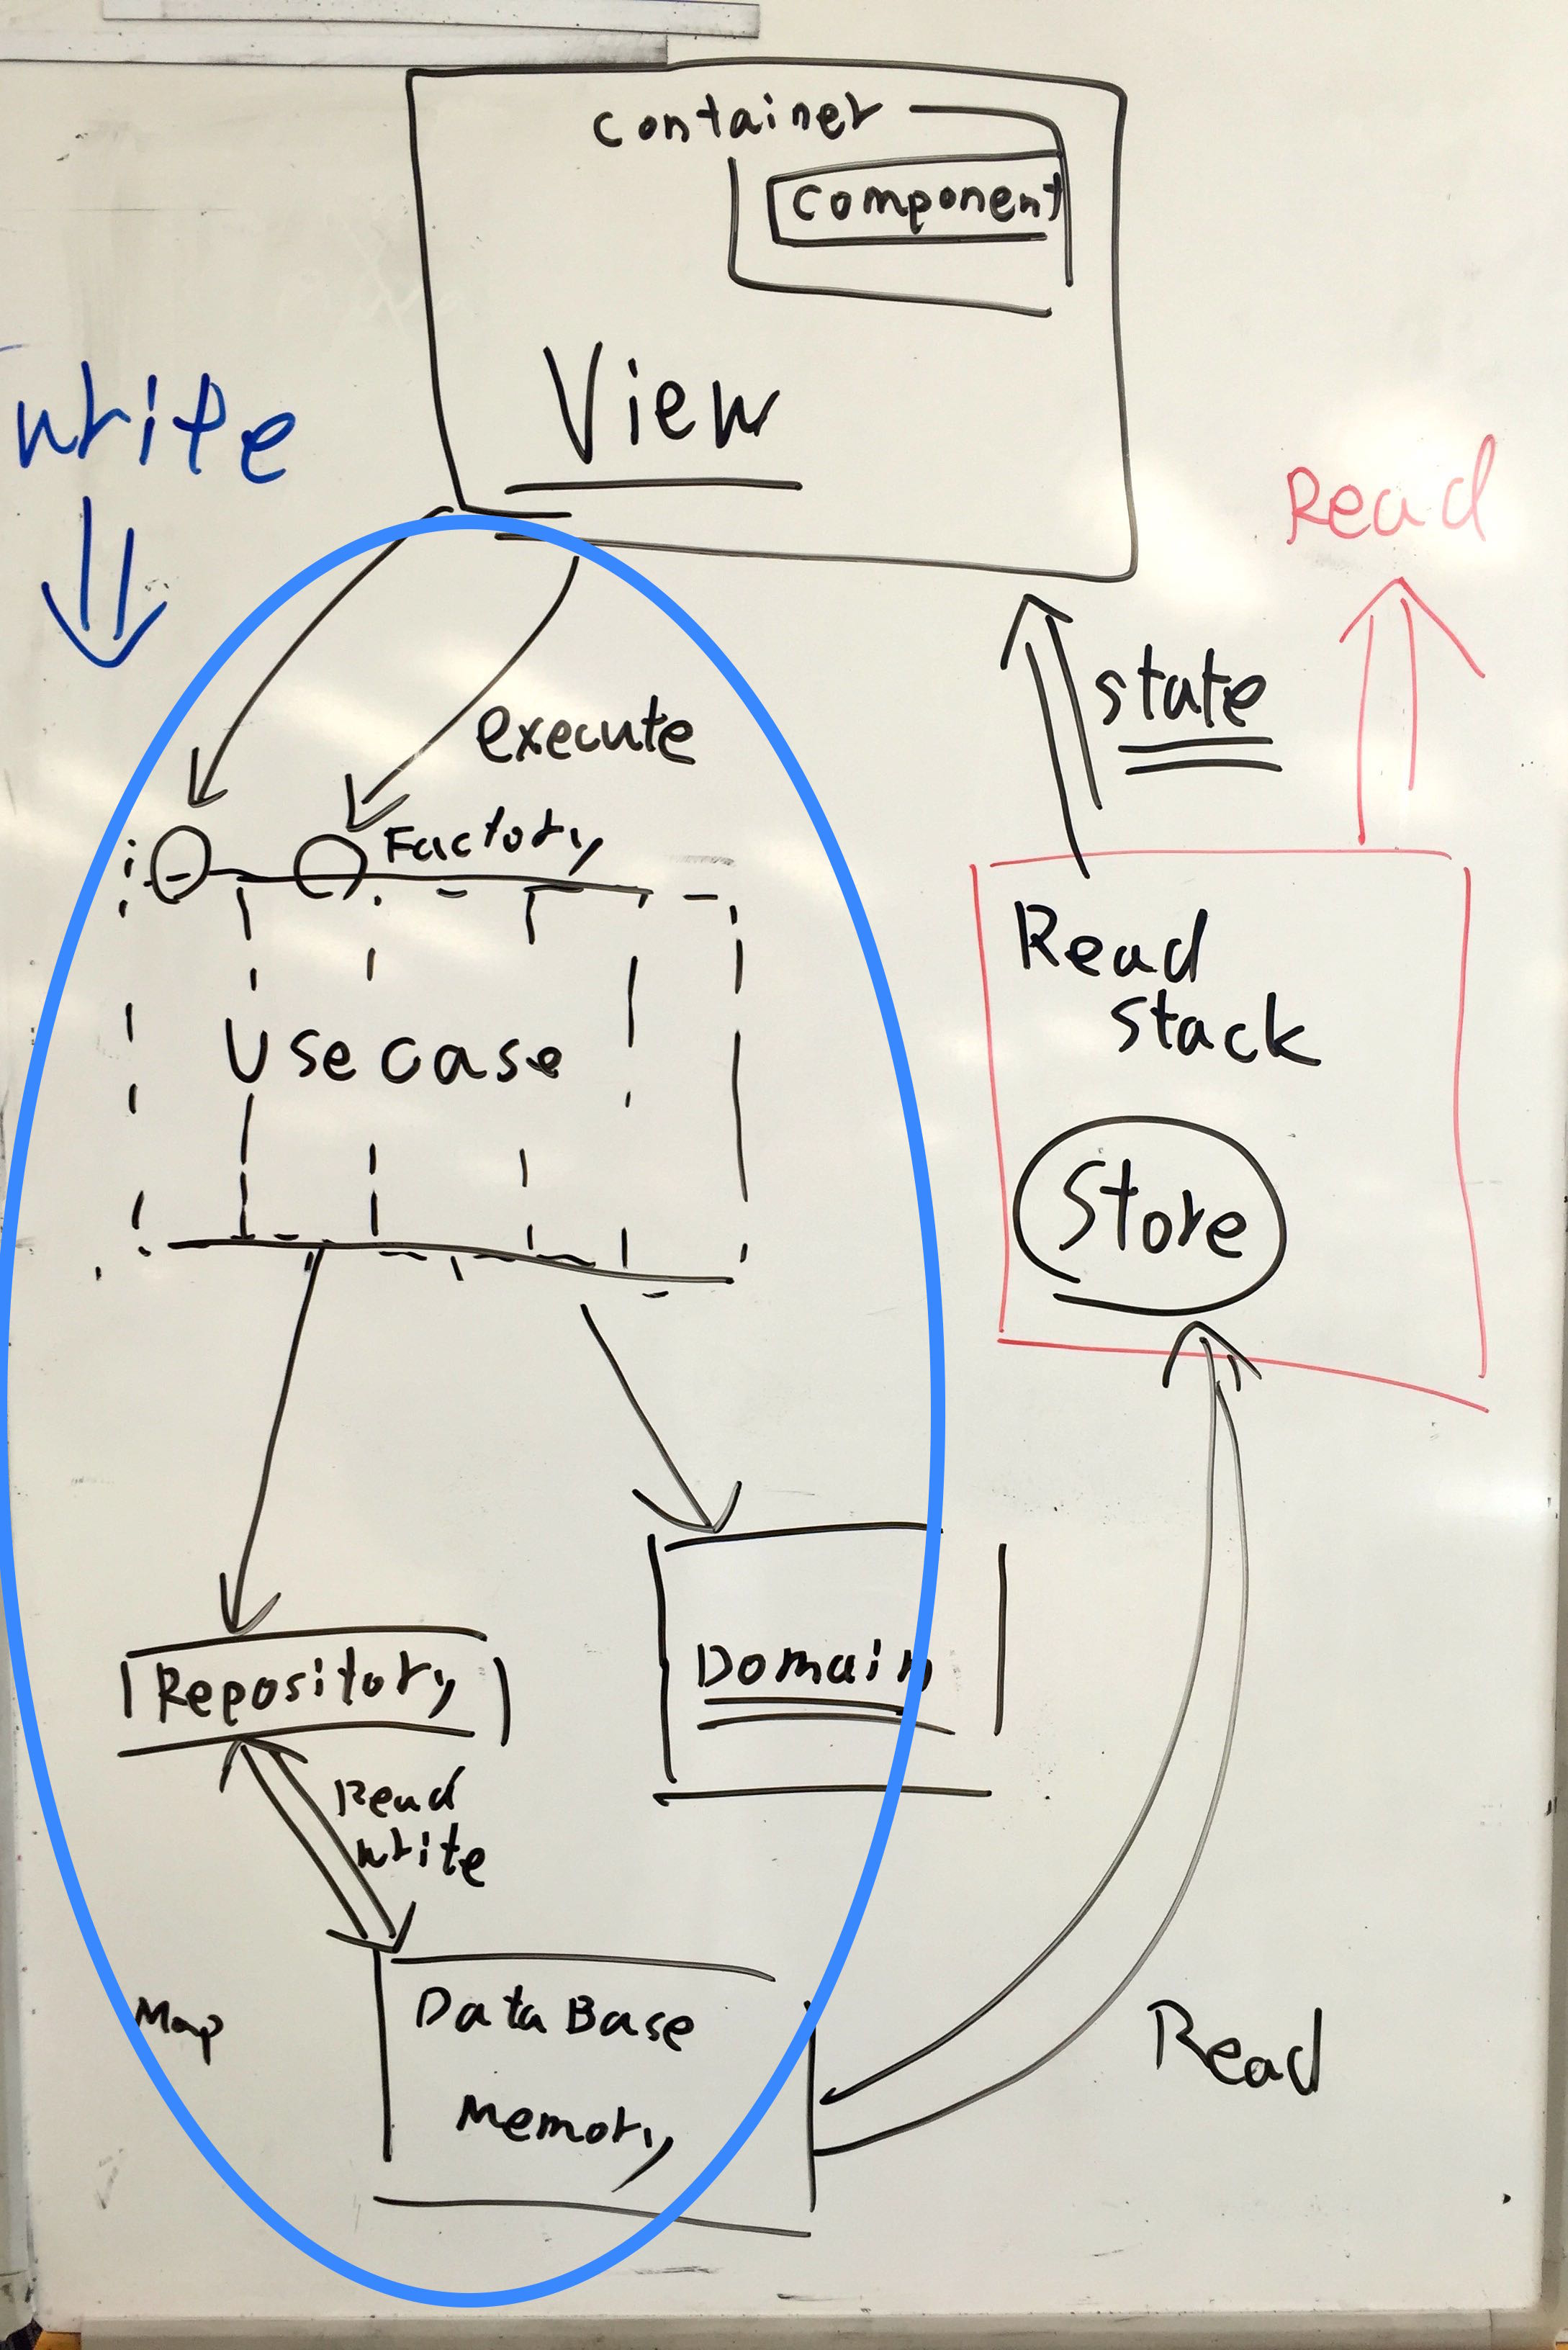 Container
Component
View
write
Read
state
execute
Factory
Usecase
Read
stack
Store
Repository
Domain
Read
write
Map
DataBase
Memory
Read